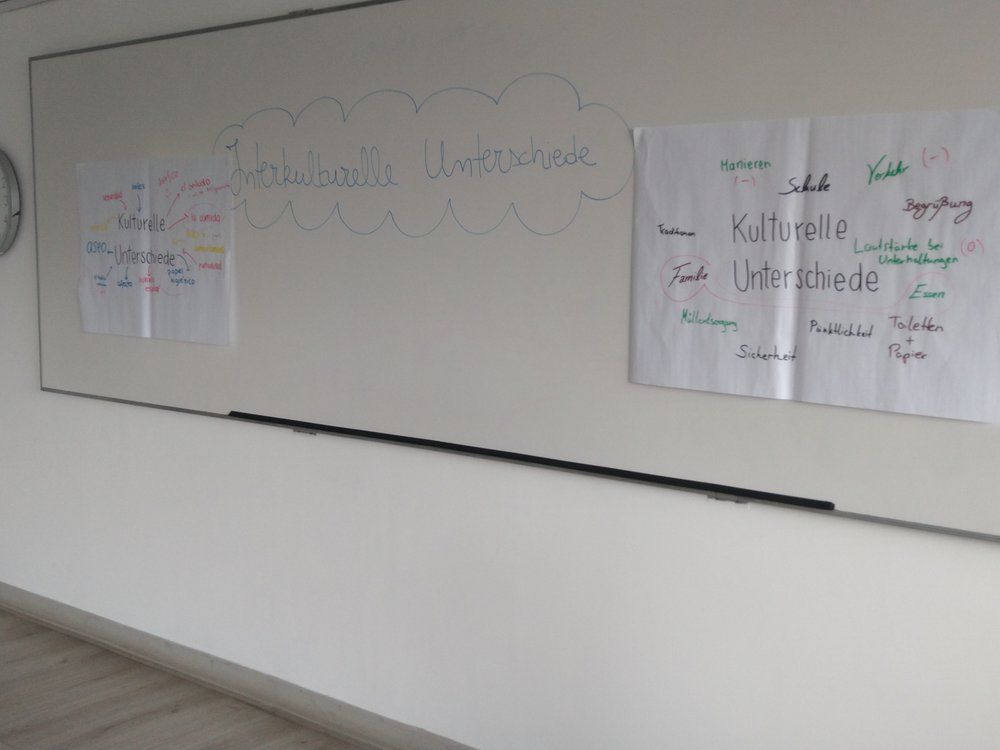 Interkulturelle Unterschiede
el saludo
la comida
Kulturelle
aseo
Unterschiede
papel
higiénico
Manieren
(-)
Schule
Verkehr (-)
Begrüßung
Traditionen
Kulturelle
Lautstärke bei (0)
Unterhaltungen
Familie
Unterschiede
Essen
Müllentsorgung
Pünktlichkeit
Toiletten
+
Papier
Sicherheit